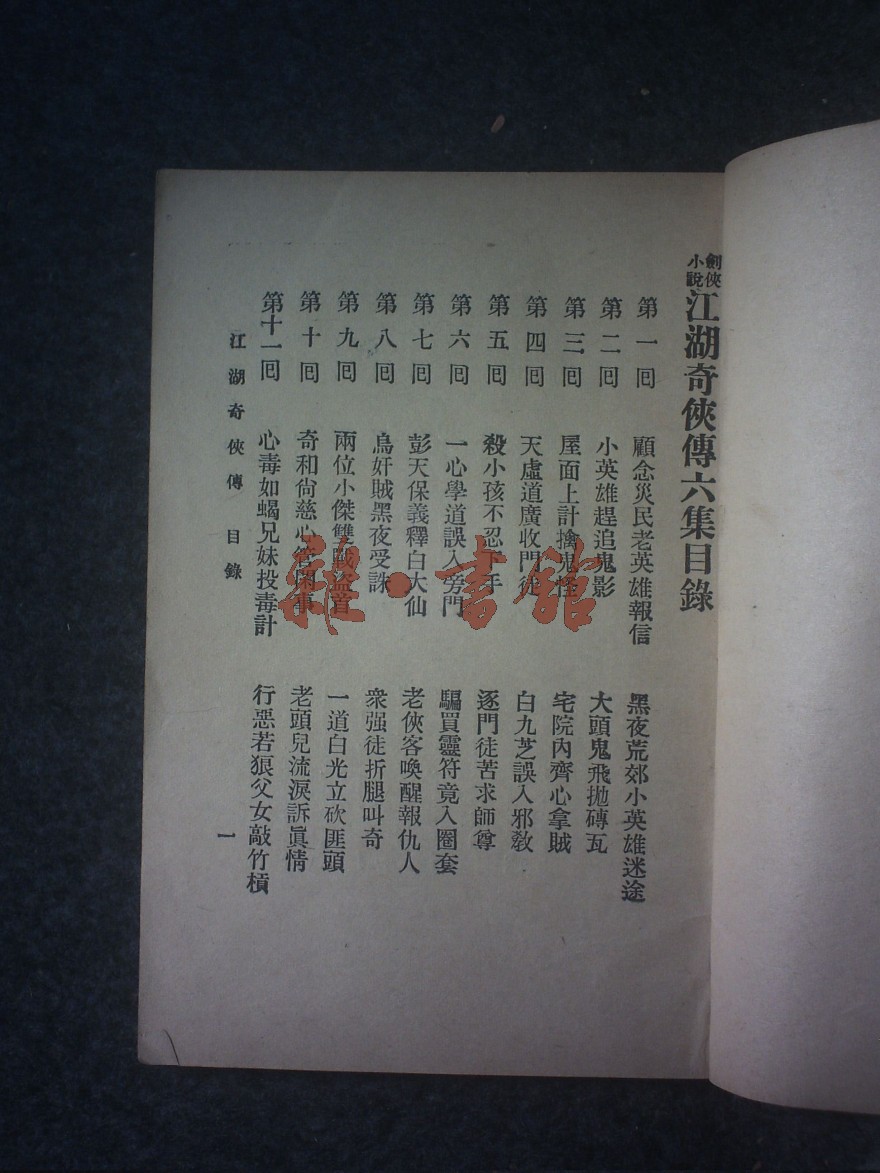 劍俠小說 江湖奇俠傳六集目錄
第一囘 顧念災民老英雄報信 黑夜荒郊小英雄迷途
第二囘 小英雄趕追鬼影 大頭鬼飛拋磚瓦
第三囘 屋面上計擒鬼怪 宅院內齊心拿賊
第四囘 天虛道廣收門徒 白九芝誤入邪敎
第五囘 殺小孩不忍下手 逐門徒苦求師尊
第六囘 一心學道誤入旁門 騙買靈符竟入圈套
第七囘 彭天保義釋白大仙 老俠客喚醒報仇人
第八囘 鳥奸賊黑夜受誅 衆强徒折腿叫奇
第九囘 兩位小傑雙戰盜首 一道白光立砍匪頭
第十囘 奇和尙慈心管閑事 老頭兒流淚訴眞情
第十一囘 心毒如蝎兄妹投毒計 行惡若狠父女敲竹槓
江湖奇俠傳 目錄 一
雜·書館